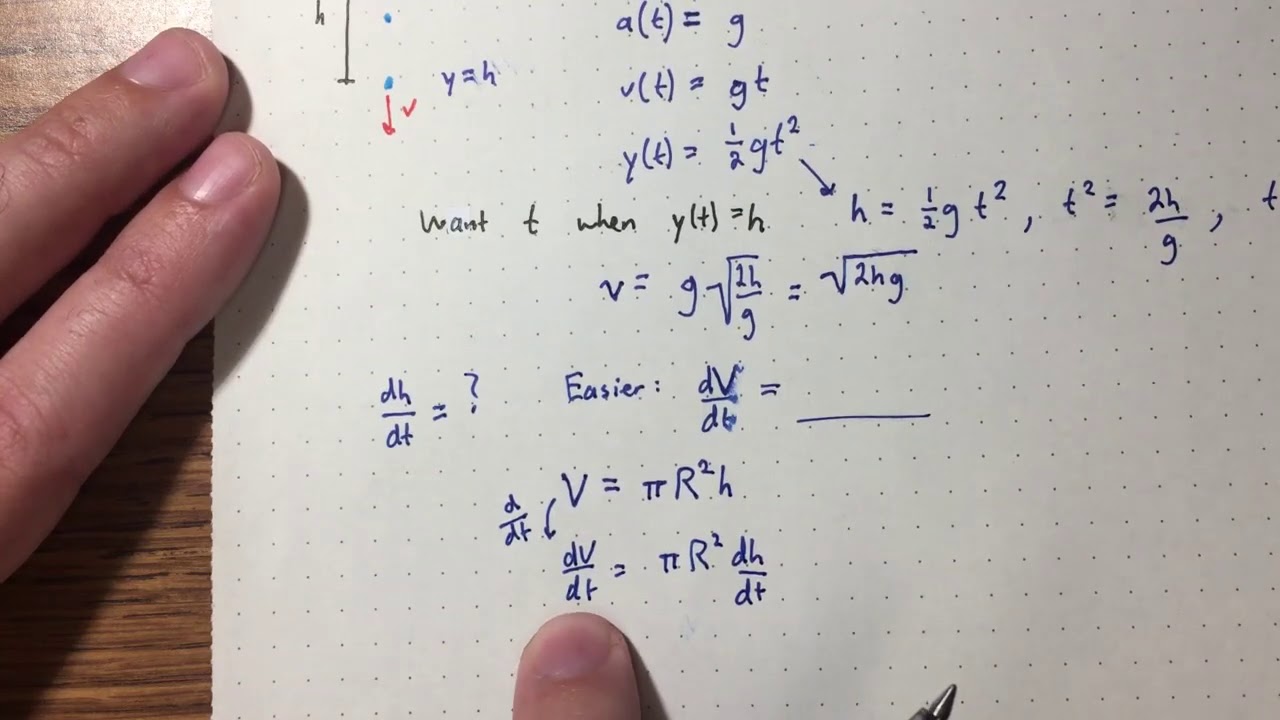 h
a(t) = g
y=h
v(t) = gt
v
y(t) = ½gt²
want t when y(t)=h
h = ½g t², t² = 2h/g, t
v = g√(2h/g) = √(2hg)
dh/dt = ? Easier: dV/dt = ____
V = πR²h
d/dt
dV/dt = πR² dh/dt